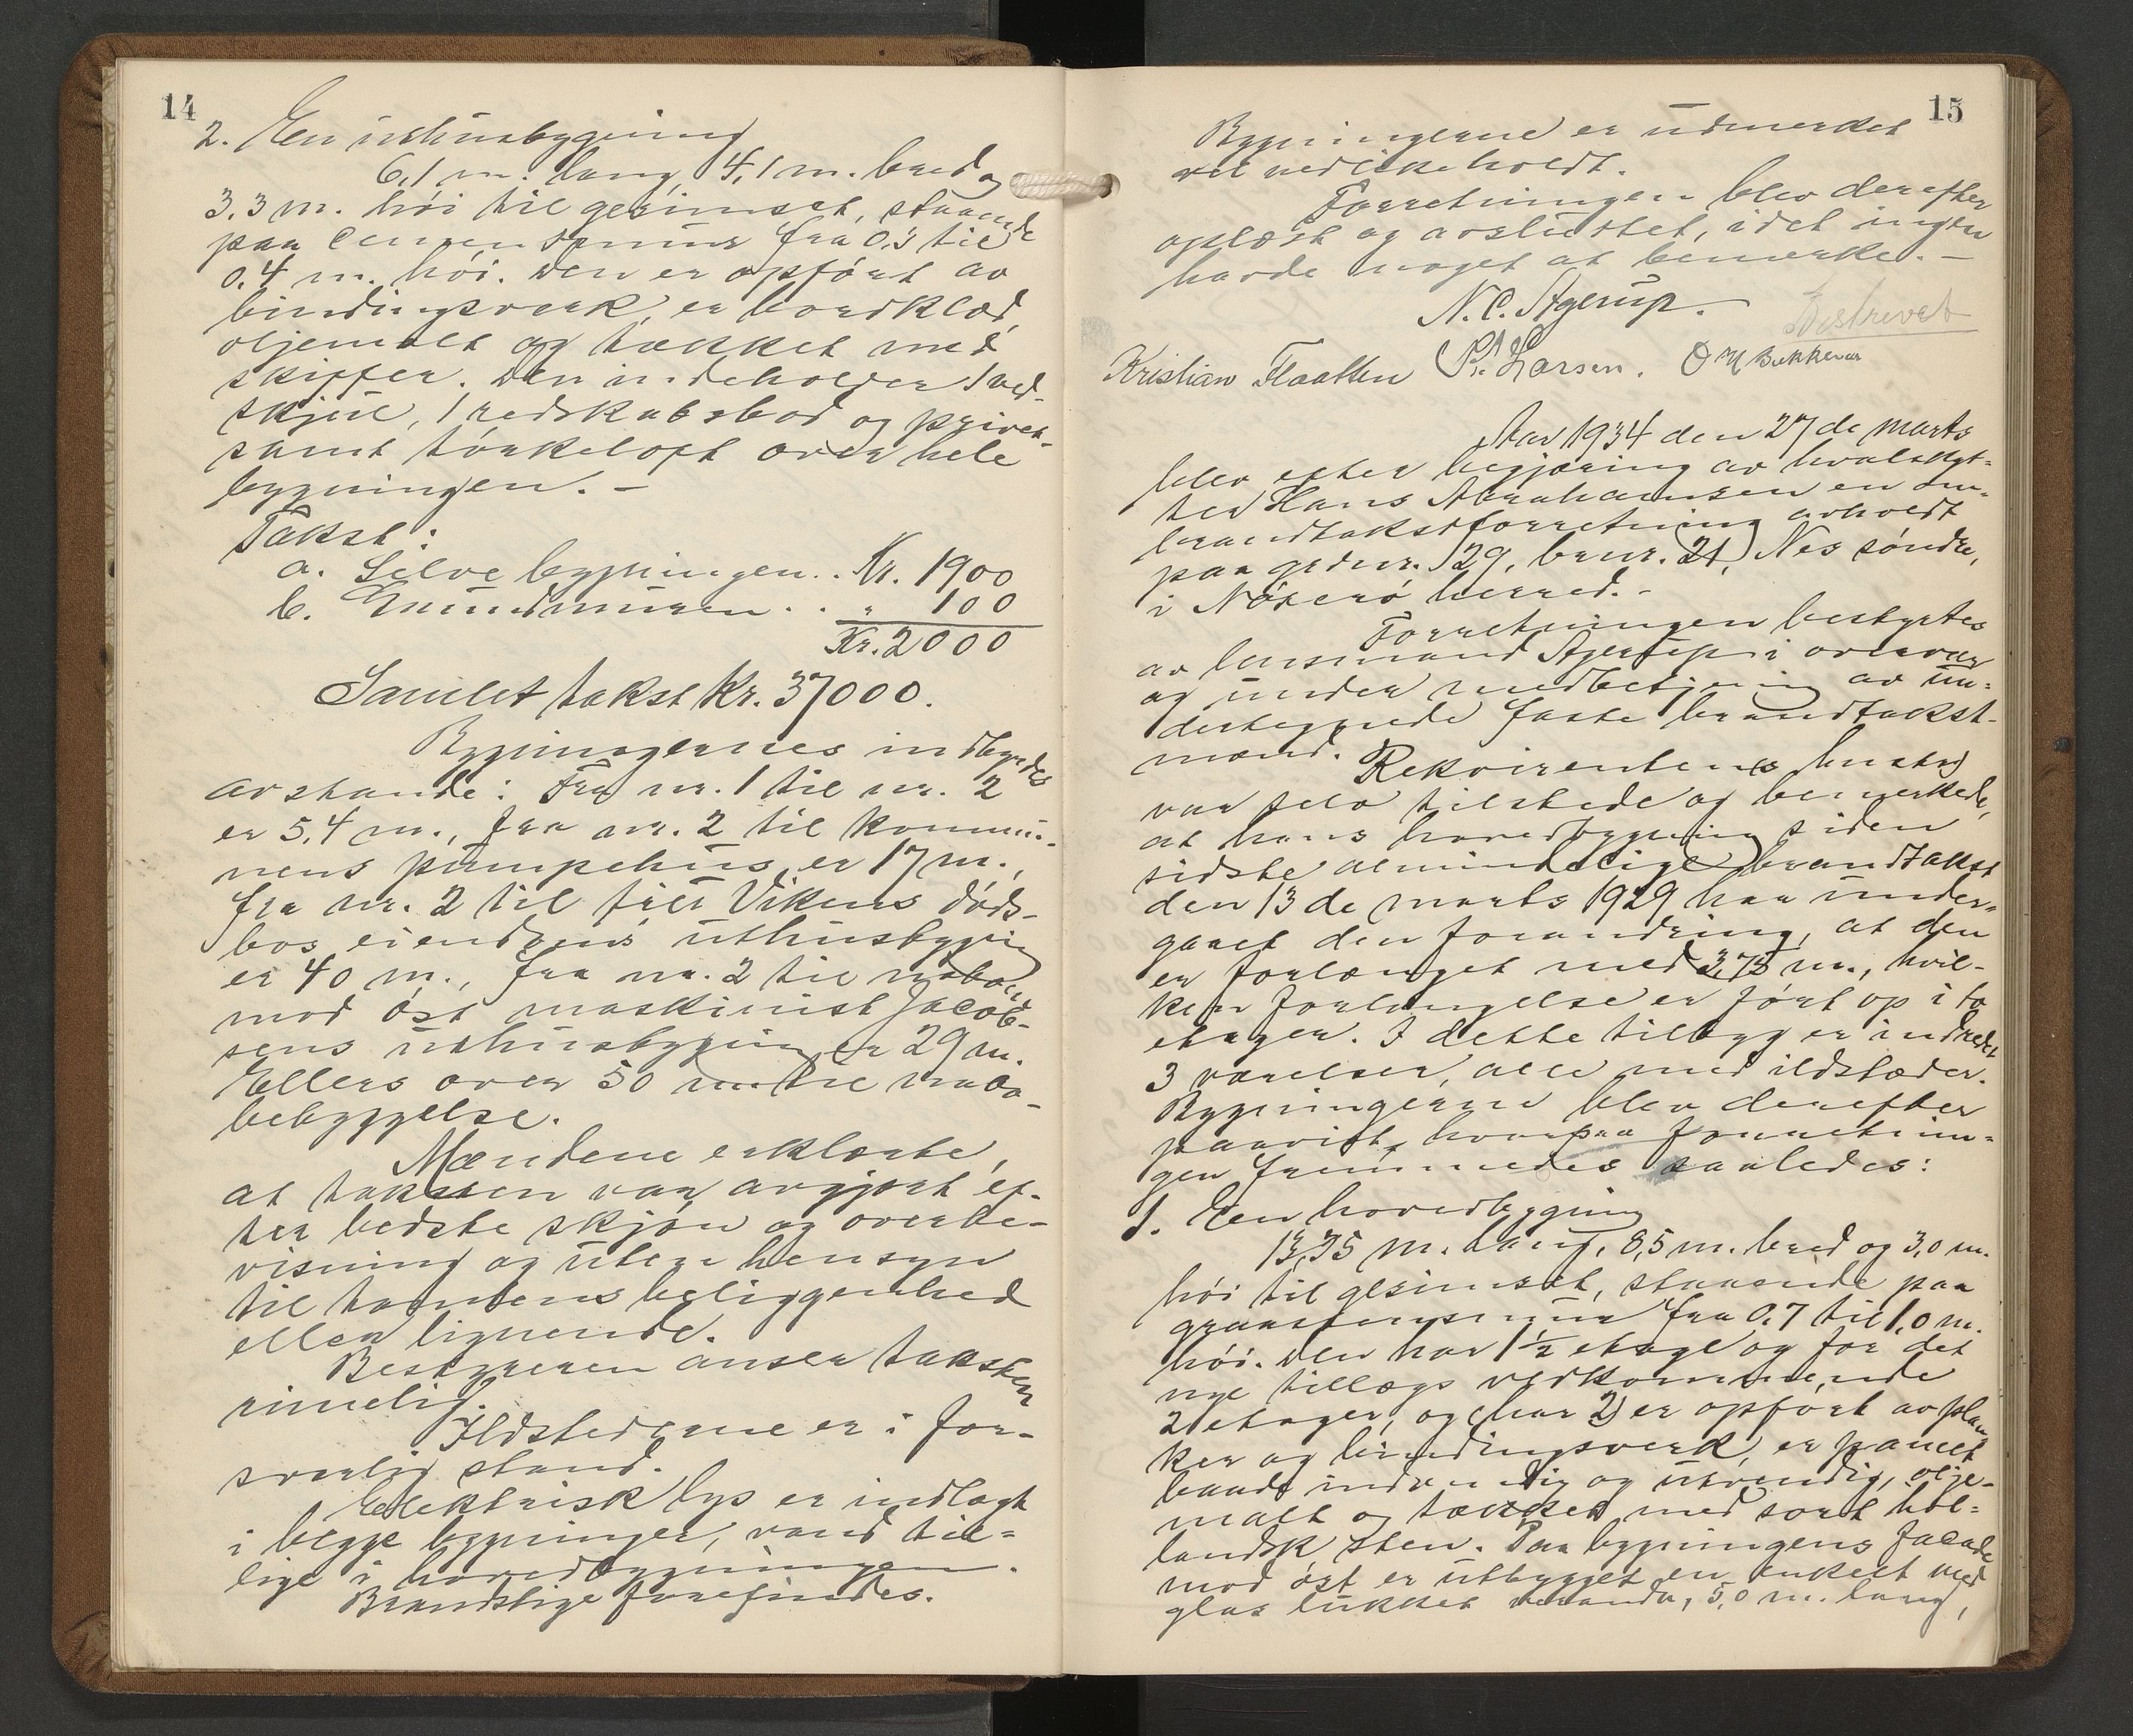 14
2. En uthusbygning
6,1 m. lang, 4,1 m. bred og
3,3 m. høi til gesimset, staaende
paa cementmur fra 0,3 til
0,4 m. høi. Den er opført av
bindingsverk, er bordklæd,
oljemalt og tækket med
skiffer. Den indeholder 1 ved-
skjul, 1 redskabsbod og privet
samt tørkeloft over hele
bygningen. –
Takst:
a. Selve bygningen .. Kr. 1900
b. Grundmuren . . " 100
Kr. 2000
Samlet takst Kr. 37000.
Bygningernes indbyrdes
avstande: Fra nr. 1 til nr. 2
er 5,4 m., fra nr. 2 til kommu-
nens pumpehus er 17 m.,
fra nr. 2 til Vikens døds-
bos eiendoms uthusbygning
er 40 m., fra nr. 2 til naboen
mod øst maskinist Jacob-
sens uthusbygning er 29 m.
Ellers over 50 m. til nabo-
bebyggelse.
Mændene erklærte,
at taksten var avgjort ef-
ter bedste skjøn og overbe-
visning og uten hensyn
til tomtens beliggenhed
eller lignende.
Bestyreren anser taksten
rimelig.
Ildstederne er i for-
svarlig stand.
Elektrisk lys er indlagt
i begge bygninger, vand til-
lige i hovedbygningen.
Brandstige forefindes.
15
Bygningerne er udmerket
vel vedlikeholdt.
Forretningen blev derefter
oplæst og avsluttet, idet ingen
havde noget at bemerke. –
N. C. Agerup.
Beskrevet
Kristian Flaatten P. Larsen. O M Bakkevar
Aar 1934 den 27 de marts
blev efter begjæring av hvalskyt-
ter Hans Abrahamsen en om-
brandtakstforretning avholdt
paa grdnr. 129, brnr. 21, Nes søndre,
i Nøtterø herred. –
Forretningen bestyrtes
av lensmand Agerup i overvær
og under medbetjening av un-
dertegnede faste brandtakst-
mænd.
Rekvirentens hustru
var selv tilstede og bemerkede,
at hans hovedbygning siden
sidste almindelige brandtakst
den 13 de marts 1929 har under-
gaaet den forandring, at den
er forlænget med 3,75 m., hvil-
ken forlængelse er ført op i to
etager. I dette tilbygg er indredet
3 værelser, alle med ildstæder.
Bygningerne blev derefter
paavist, hvorpaa forretnin-
gen fremmedes saaledes:
1. En hovedbygning
13,35 m. lang, 8,5 m. bred og 3,0 m.
høi til gesimset, staaende paa
graastensmur fra 0,7 til 1,0 m.
høi. Den har 1½ etage og for det
nye tillægs vedkommende
2 etager, og (har 2) er opført av plan-
ker og bindingsverk, er panelt
baade indvendig og utvendig, olje-
malt og tækket med sort hol-
landsk sten. Paa bygningens facade
mod øst er utbygget en enkelt med
glas lukket veranda, 5,0 m. lang,